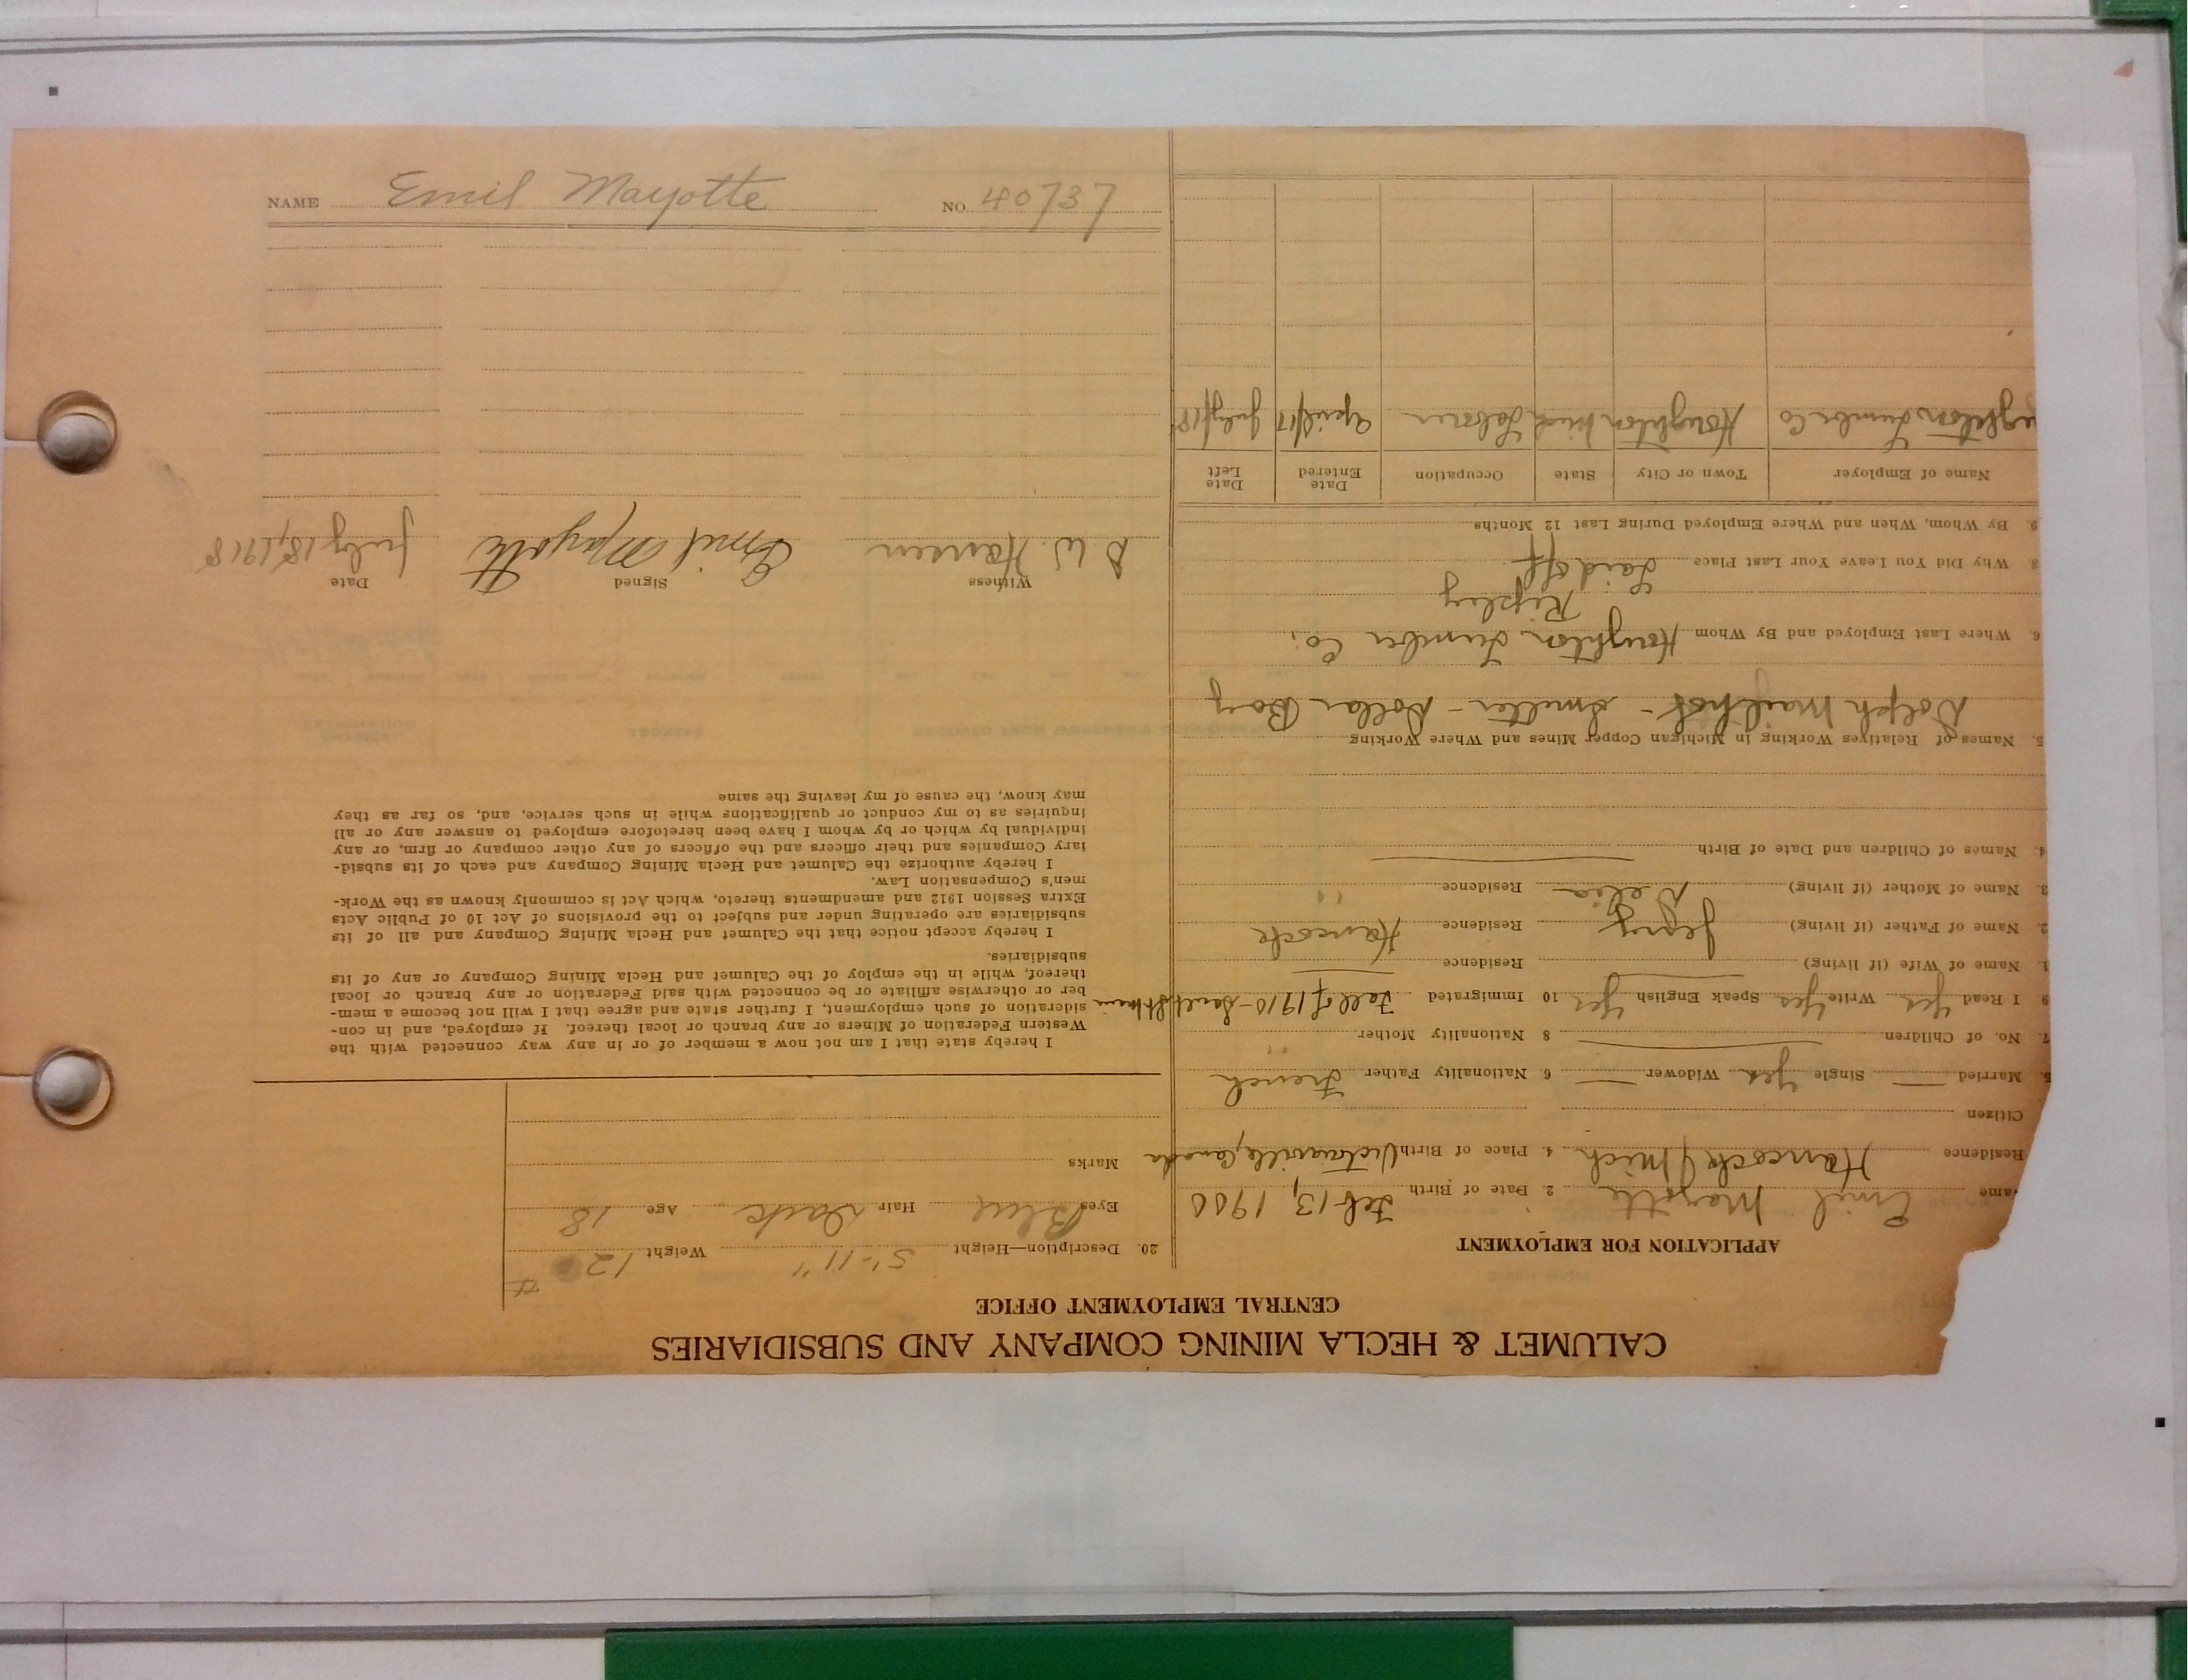 CALUMET & HECLA MINING COMPANY AND SUBSIDIARIES
CENTRAL EMPLOYMENT OFFICE
APPLICATION FOR EMPLOYMENT
ame Emil Mayotte 2. Date of Birth Feb 13, 1900
Residence Hancock Mich 4. Place of Birth Victoriaville, Canada
Citizen
5. Married — Single Yes Widower — 6 Nationality Father French
7. No. of Children — 8 Nationality Mother " "
9 I Read Yes Write Yes Speak English Yes 10 Immigrated Fall of 1910 - Sault St Marie
1. Name of Wife (if living) — Residence —
2. Name of Father (if living) Residence Hancock
3. Name of Mother (if living) Delia Residence " "
4. Names of Children and Date of Birth —
5. Names of Relatives Working in Michigan Copper Mines and Where Working
Dolph Mailhot - Smelter - Dollar Bay
6. Where Last Employed and By Whom Houghton Lumber Co.
Ripley
8. Why Did You Leave Your Last Place Laid off
9. By Whom, When and Where Employed During Last 12 Months
Name of Employer Town or City State Occupation Date Entered Date Left
ughton Lumber Co Houghton Mich Laborer April/17 July/18
20. Description—Height 5'-11" Weight #
Eyes Blue Hair Dark Age 18
Marks
I hereby state that I am not now a member of or in any way connected with the
Western Federation of Miners or any branch or local thereof. If employed, and in con-
sideration of such employment, I further state and agree that I will not become a mem-
ber or otherwise affiliate or be connected with said Federation or any branch or local
thereof, while in the employ of the Calumet and Hecla Mining Company or any of its
subsidiaries.
I hereby accept notice that the Calumet and Hecla Mining Company and all of its
subsidiaries are operating under and subject to the provisions of Act 10 of Public Acts
Extra Session 1912 and amendments thereto, which Act is commonly known as the Work-
men's Compensation Law.
I hereby authorize the Calumet and Hecla Mining Company and each of its subsid-
iary Companies and their officers and the officers of any other company or firm, or any
individual by which or by whom I have been heretofore employed to answer any or all
inquiries as to my conduct or qualifications while in such service, and, so far as they
may know, the cause of my leaving the same
Witness Signed Date
W. Hansen Emil Mayotte July 18, 1918
NAME Emil Mayotte NO. 40737